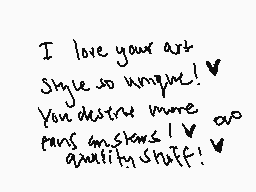 I love your art
style so unique! ♥
You deserve more
fans an stars! ♥
quality stuff! ♥